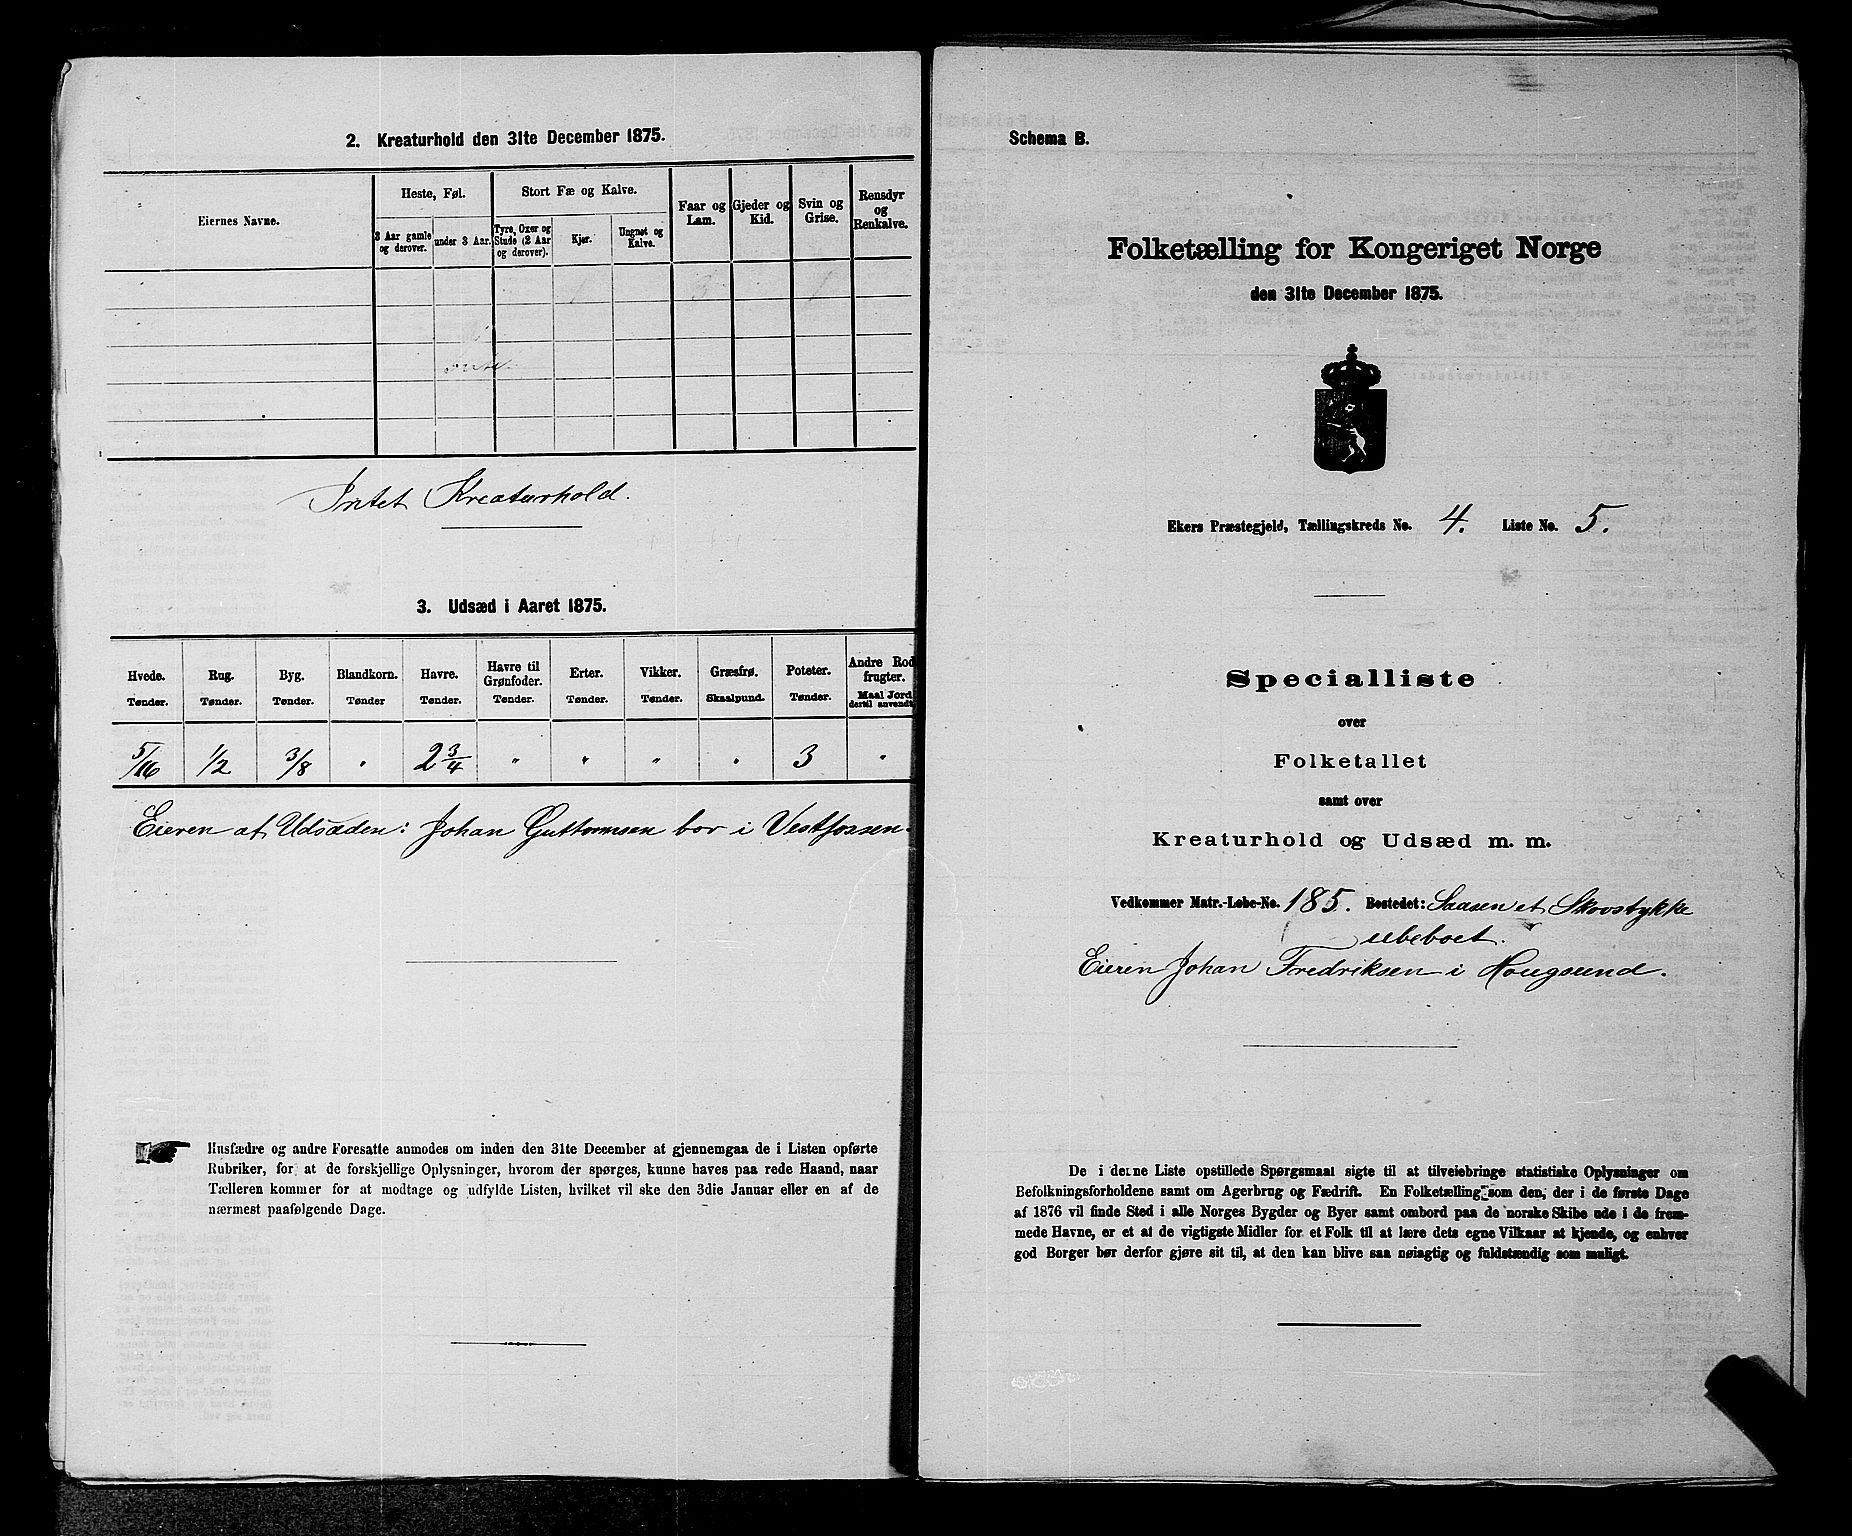 2. Kreaturhold den 31te December 1875.
Eiernes Navne.
Heste, Føl.
3 Aar gamle og derover.
under 3 Aar.
Stort Fæ og Kalve.
Tyre, Oxer og Stude (2 Aar og derover).
Kjør.
Ungnøt og Kalve.
Faar og Lam.
Gjeder og Kid.
Svin og Grise.
Rensdyr og Renkalve.
1 3 1
Intet Kreaturhold.
3. Udsæd i Aaret 1875.
Hvede. Rug. Byg. Blandkorn. Havre. Havre til Grønfoder. Erter. Vikker. Græsfrø. Poteter. Andre Rodfrugter.
Tønder. Tønder. Tønder. Tønder Tønder. Tønder. Tønder. Tønder. Skaalpund. Tønder. Maal Jord dertil anvendt.
5/16 1/2 3/8 " 2 3/4 " " " " 3 "
Eieren af Udsæden: Johan Guttormsen bor i Vestfossen.
Husfædre og andre Foresatte anmodes om inden den 31te December at gjennemgaa de i Listen opførte
Rubriker, for at de forskjellige Oplysninger, hvorom der spørges, kunne haves paa rede Haand, naar
Tælleren kommer for at modtage og udfylde Listen, hvilket vil ske den 3die Januar eller en af de
nærmest paafølgende Dage.
Schema B.
Folketælling for Kongeriget Norge
den 31te December 1875.
Ekers Præstegjeld, Tællingskreds No. 4. Liste No. 5.
Specialliste
over
Folketallet
samt over
Kreaturhold og Udsæd m. m.
Vedkommer Matr.-Løbe-No. 185. Bostedet: Saasen et Skovstykke
ubeboet.
Eieren Johan Fredriksen i Hougsund.
De i denne Liste opstillede Spørgsmaal sigte til at tilveiebringe statistiske Oplysninger om
Befolkningsforholdene samt om Agerbrug og Fædrift. En Folketælling som den, der i de første Dage
af 1876 vil finde Sted i alle Norges Bygder og Byer samt ombord paa de norske Skibe ude i de frem-
mede Havne, er et af de vigtigste Midler for et Folk til at lære dets egne Vilkaar at kjende, og enhver
god Borger bør derfor gjøre sit til, at den kan blive saa nøiagtig og fuldstændig som muligt.